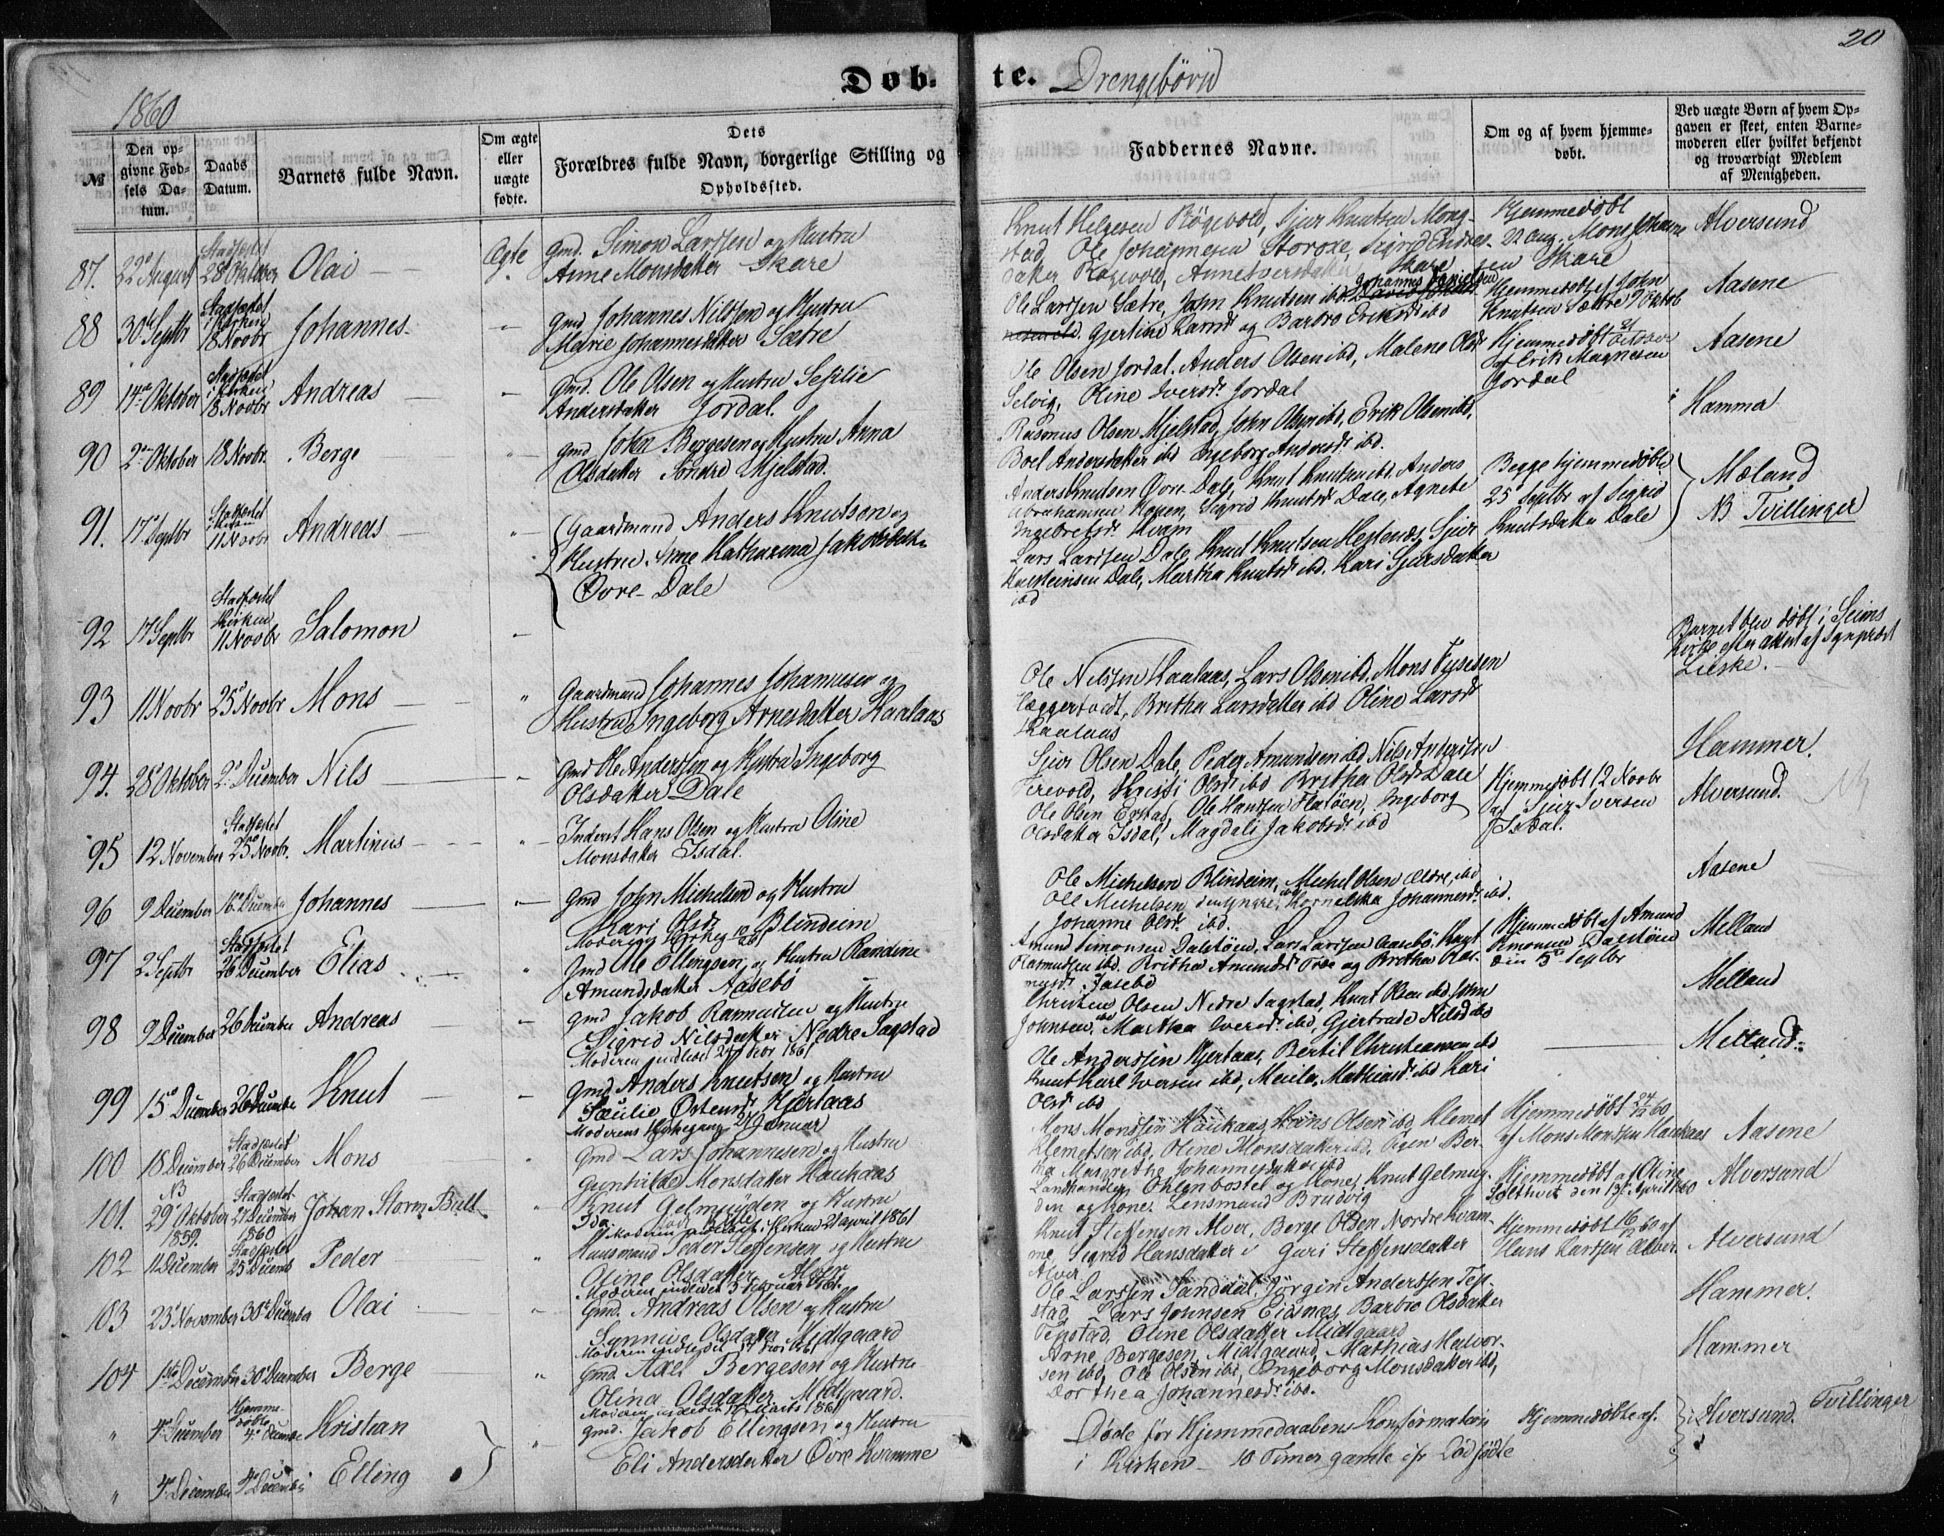 20
1860
Døb-
te. Drengebörn
№
Den op-
givne Fød-
sels Da-
tum.
Daabs
Datum.
Barnets fulde Navn.
Om ægte
eller
uægte
fødte.
Dets
Forældres fulde Navn, borgerlige Stilling og
Opholdssted.
Faddernes Navne.
Om og af hvem hjemme-
døbt.
Ved uægte Børn af hvem Op-
gaven er skeet, enten Barne-
moderen eller hvilket bekjendt
og troværdigt Medlem
af Menigheden.
87. 22de August Stadfæstet 28de Oktober Olai Ægte
Gmd. Simon Larssen og Hustru
Anne Monsdatter Skare
Knut Helgesen Bögevold, Sjur Knutsen Mong-
stad, Ole Johannesen Storoxe, Sigrid Endres-
datter Bögevold, Anne Iversdatter Skare
Hjemmedöbt
22 Aug. Mons Johanne
sen Skare
Alversund
88 30te Septbr Stadfæstet i Kirken 18 Novbr Johannes
Gmd Johannes Nilssen og Hustru
Marie Johannesdatter Sætre
Ole Larssen Sætre, John Knutsen ibd Johannes Danielsen
Gjertine Larsd og Barbro Eriksd ibd
Hjemmedöbt af John
Knutsen Sættre 9 Oktob
Aasene
89 14de Oktober Stadfæstet i Kirken 18 Novbr Andreas
Gmd. Ole Olsen og Hustru Sesilie
Andersdatter Jordal.
Ole Olsen Jordal. Anders Olsen ibd, Malene Olsd
Selvig, Oline Iversd Jordal
Hjemmedöbt 21 October
af Erik Magnesen
Jordal
Aasene
90 2den Oktober 18 Novbr. Berge
Gmd John Bergesen og Hustru Anna
Olsdatter Söndre Mjelstad.
Rasmus Olsen Mjelstad, John Olsen ibd, Erik Olsen ibd,
Boel Andersdatter ibd Ingeborg Andersd ibd.
Hamma
91. 17de Septbr Stadfæstet i Kirken 11 Novbr Andreas
Gaardmand Anders Knutsen og
Hustru Anne Katharina Jakobsdatter
Övre-Dale
Anders Knudsen Övre Dale, Knut Knutsen ibd. Anders
Abrahamsen Kopen, Sigrid Knutsd Dale, Agnete
Ingebretsd Hvam
Begge hjemmedöbte
25 Septbr af Sigrid
Knutsdatter Dale
Mæland
NB Tvillinger
92 17 Septbr Stadfæstet i Kirken 11 Novbr Salomon
Lars Larssen Dale, Knut Knutsen Hestenæs, Sjur
Halsteinsen Dale, Martha Knutsd ibd. Kari Sjursdatter
ibd
93 11 Novbr 25de Novbr Mons
Gaardmand Johannes Johannesen og
Hustru Ingeborg Arnesdatter Haalaas
Ole Nilssen Haalaas, Lars Olsen ibd, Mons
Hæggertvedt, Brithe Larsdatter ibd Oline Larsd
Haalaas
Barnet blev döbt i Seims
Kirke efter attest af Sognepræst
94. 28de Oktober 2den December Nils
Gmd Ole Anderssen og Hustru Ingeborg
Olsdatter Dale
Sjur Olsen Dale, Peder Amundsen ibd, Nils Anderssen
Fyrevold, Kristi Olsd ibd Britha Olsd Dale
Hammer.
95 12 November Stadfæstet 25de Novbr. Martinus
Inderst Hans Olsen og Hustru Oline
Monsdatter Isdal.
Ole Olsen Erstad, Ole Hanssen Flatöen, Ingeborg
Olsdatter Isdal, Magdeli Jakobsd ibd
Hjemmedöbt 12 Novbr
af Sjur Iversen
Isdal.
Alversund.
96 9 December 16de December Johannes
Gmd John Michelsen og Hustru
Mari Olsd Blindeim
Ole Michelsen Blindeim, Michel Olsen Ældre, ibd
Ole Michelsen den yngre, ibd Kornelia Johannesd ibd.
Johanne Olsd ibd.
Aasene
97 2 Septbr Stadfæstet 26 December Elias
Gmd Ole Ellingsen og Hustru Randine
Amundsdatter Aasebö
Amund Simonsen Dalstöen, Lars Larssen Aasebö, Knut
Rasmussen ibd. Britha Amundsd Træ og Britha Ras-
musd Aasebö
Hjemmedöbt af Amund
Simonsen Dalstöen
den 5te Septbr
Melland
98 9 December 26 December Andreas
Gmd Jakob Rasmussen og Hustru
Sigrid Nilsdatter Nedre Sagstad
Moderen indledet 24 Febr 1861
Christen Olsen Nedre Sagstad, Knut Olsen ibd. John
Johnsen, ibd Martha Iversd ibd, Gjertrude Nilsd ibd
Melland
99 15de December 26 December Knut
Gmd Anders Knutsen og Hustru
Paulie Östensd Kjertaas
Moderens Kirkegang 27 Januar
Ole Anderssen Kjertaas, Bertil Christiansen ibd
Knut Karl Iversen ibd, Merita Mathiasd ibd Kari
Olsd ibd
Melland.
100 18. December Stadfæstet 26 December Mons
Gmd Lars Johannesen og Hustru
Gunhilde Monsdatter Haukaas
Mons Monssen Haukaas, Mons Olsen ibd, Klemet
Klemetsen ibd, Oline Monsdatter ibd,
Margrethe Johannesdatter ibd
Hjemmedöbt 24/12 60
af Mons Monssen Haukaas
Aasene
101. NB 29de Oktober 1859. Stadfæstet 27 December 1860 Johan Storm Bull
Knut Gelmuyden og Hustru
Ida
Moderen indledet i Kirken 21 april 1861
Landhandler Ohlenbostel og Kone, Knut Gelmuy-
den og Kone. Lensmand Brudvig
Hjemmedöbt af Oline
Soltveit den 13de April 1860
Alversund
102 11 December Stadfæstet 25de Decemb Peder
Huusmand Peder Steffensen og Hustru
Oline Olsdatter Alver
Moderen indledet 3 Februar 1861.
Knut Steffensen Alver, Berge Olsen Nordre Kvam-
me, Sigrid Hansdatter Guri Steffensdatter
Alver
Hjemmedöbt 16/12 60 af
Hans Larssen Alver.
Alversund
103 23de November 30te December Olai
Gmd. Andreas Olsen og Hustru
Synnive Olsdatter Midtgaard
Moderen indledet 17 Febr 1861
Ole Larssen Sanddal, Jörgen Anderssen Tep-
stad, Lars Johnsen Eidsnes, Barbro Olsdatter
Tepstad, Oline Olsdatter Midtgaard
Hammer.
104 1ste December 30te December Berge
Gmd. Axel Bergesen og Hustru
Olina Olsdatter Midtgaard.
Moderen indledet 10 Marts 1861
Arne Bergesen, Midtgaard, Mathias Halvor-
sen ibd, Ole Olsen ibd, Ingeborg Monsdatter ibd,
Dorthea Johannesd ibd.
Hammer
" 4de December Hjemme-döbte 4de December Kristian
Gmd. Jakob Ellingsen og Hustru
Eli Andersdatter Övre Kvamme
Döde för Hjemmedaabens Konfirmation
i Kirken – 18 Timer gamle
Hjemmedöbte af.
Alversund. Tvillinger
" 4de December 4de December Elling